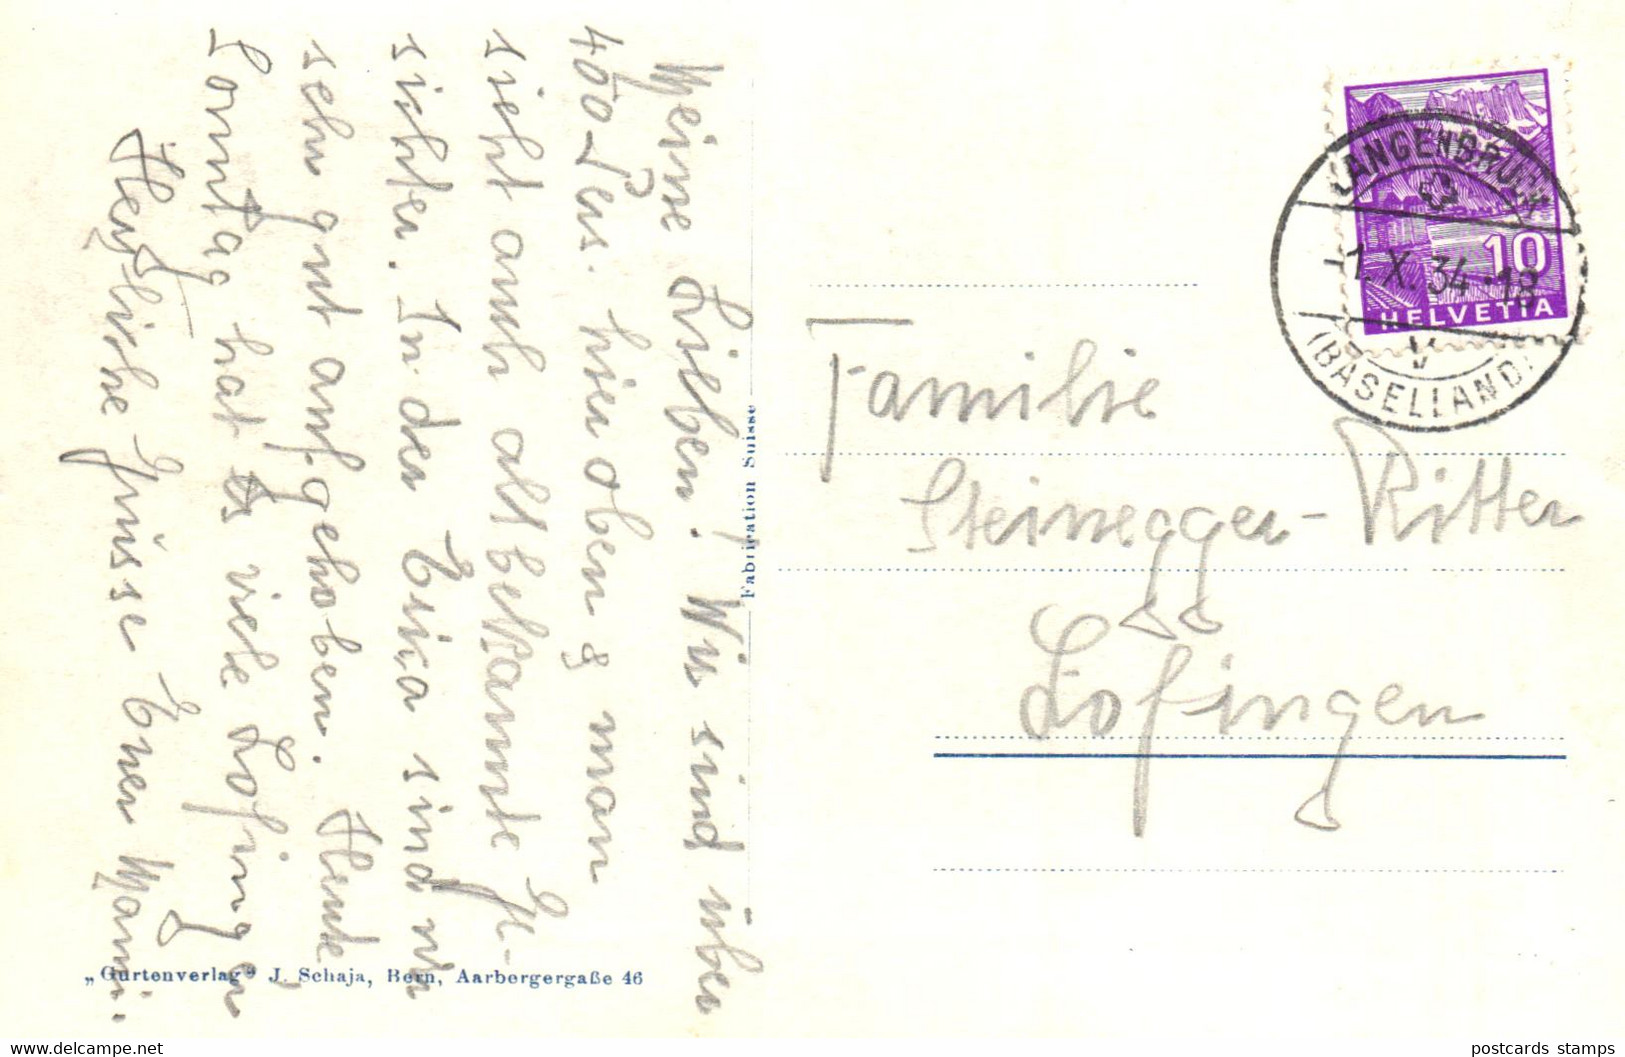 Meine Lieben! Wir sind über
400 Pers. hier oben & man
sieht auch altbekannte Ge-
sichter. In der Erica sind wir
sehr gut aufgehoben. Heute
Sonntag hat es viele Zofinger
Herzliche Grüsse Euer Mami.
„Gurtenverlag" J. Schaja, Bern, Aarbergergaße 46
Fabrication Suisse
LANGENBRUCK
-1.X.34-18
(BASELLAND)
10
HELVETIA
Familie
Steinegger-Ritter
Zofingen
Hamburg-Stamps
postcards stamps